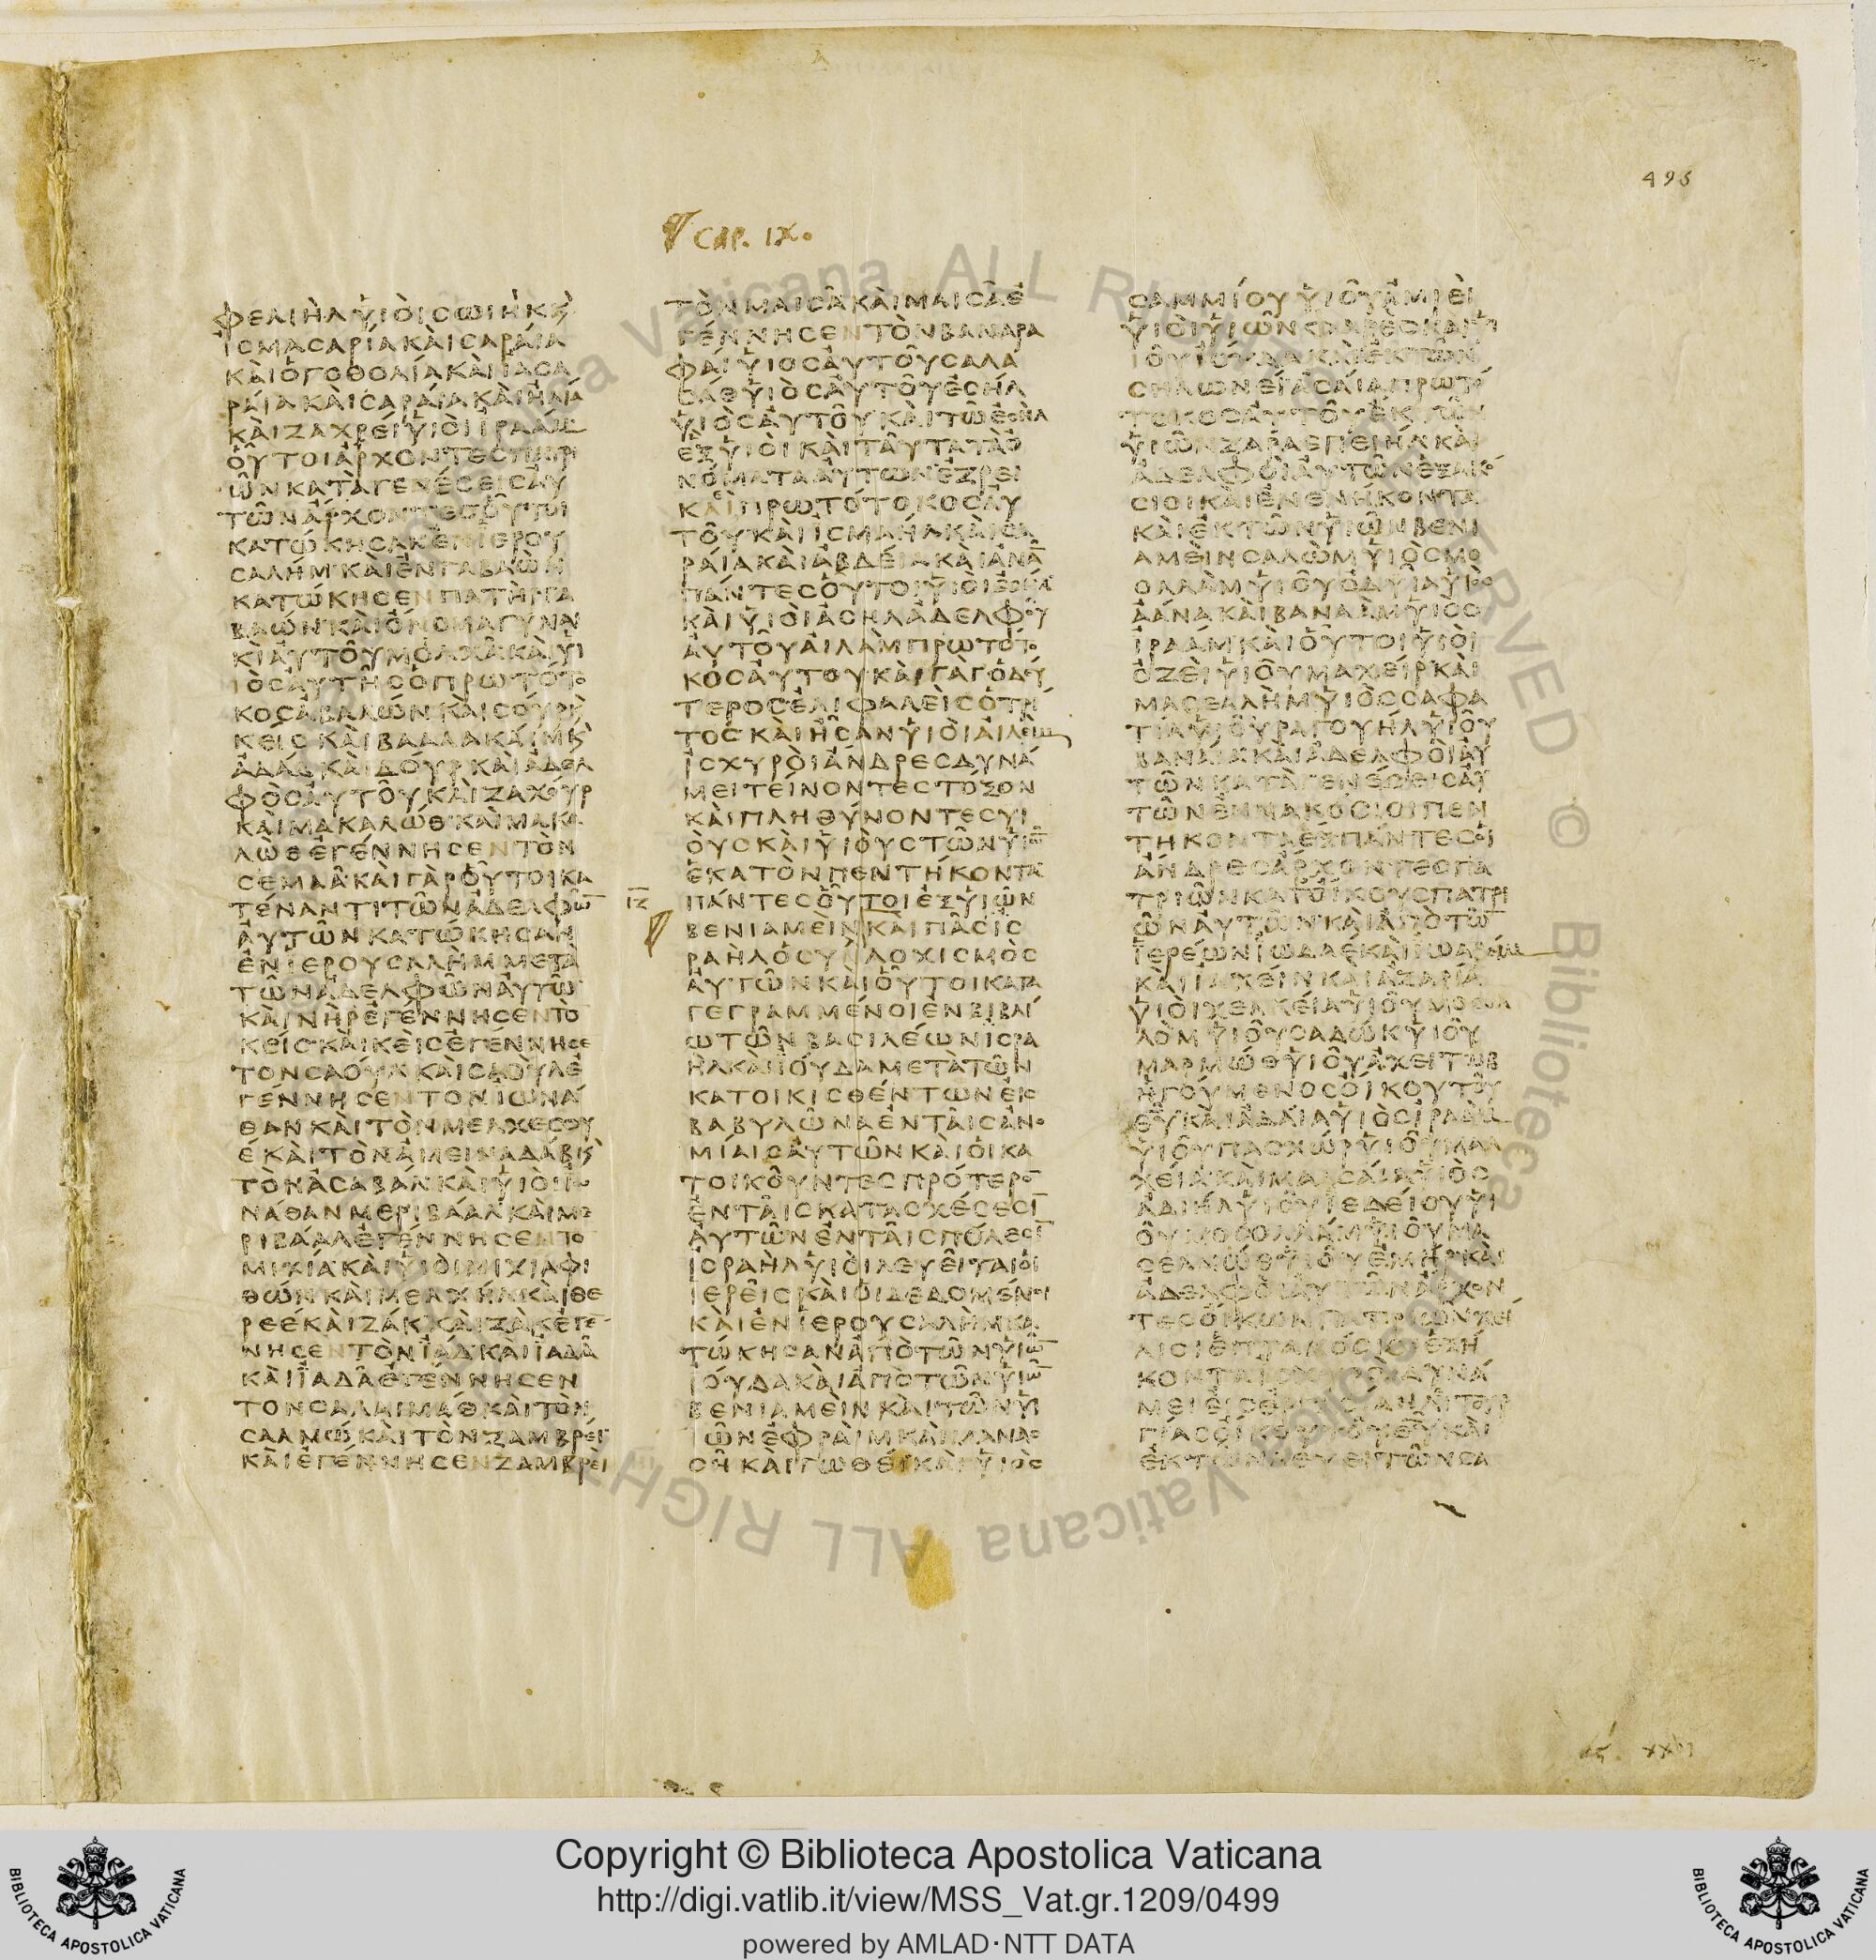 495
CAP. IX.
ΦΕΛΙΗΛΥΙΟΙΣΩΙΗΚΚΑΙ
ΙΣΜΑΣΑΡΙΑΚΑΙΣΑΡΑΙΑ
ΚΑΙΟΓΟΘΟΛΙΑΚΑΙΙΑΣΑ
ΡΑΙΑΚΑΙΣΑΡΑΙΑΚΑΙΗΛΙΑ
ΚΑΙΖΑΧΡΕΙΥΙΟΙΙΡΑΑΜ
ΟΥΤΟΙΑΡΧΟΝΤΕΣΠΑΤΡΙ
ΩΝΚΑΤΑΓΕΝΕΣΕΙΣΑΥ
ΤΩΝΑΡΧΟΝΤΕΣΟΥΤΟΙ
ΚΑΤΩΚΗΣΑΝΕΝΙΕΡΟΥ
ΣΑΛΗΜΚΑΙΕΝΓΑΒΑΩΝ
ΚΑΤΩΚΗΣΕΝΠΑΤΗΡΓΑ
ΒΑΩΝΚΑΙΟΝΟΜΑΓΥΝΑΙ
ΚΙΑΥΤΟΥΜΟΛΧΑΚΑΙΥΙ
ΙΟΣΑΥΤΗΣΟΠΡΩΤΟΤΟ
ΚΟΣΑΒΑΛΩΝΚΑΙΣΟΥΡΚΑΙ
ΚΕΙΣΚΑΙΒΑΑΛΑΚΑΙΜΚΑΙ
ΑΔΑΔΚΑΙΔΟΥΡΚΑΙΑΔΕΛ
ΦΟΣΑΥΤΟΥΚΑΙΖΑΧΟΥΡ
ΚΑΙΜΑΚΑΛΩΘΚΑΙΜΑΚΑ
ΛΩΘΕΓΕΝΝΗΣΕΝΤΟΝ
ΣΕΜΑΑΚΑΙΓΑΡΟΥΤΟΙΚΑ
ΤΕΝΑΝΤΙΤΩΝΑΔΕΛΦΩΝ
ΑΥΤΩΝΚΑΤΩΚΗΣΑΝ
ΕΝΙΕΡΟΥΣΑΛΗΜΜΕΤΑ
ΤΩΝΑΔΕΛΦΩΝΑΥΤΩΝ
ΚΑΙΝΗΡΕΓΕΝΝΗΣΕΝΤΟΝ
ΚΕΙΣΚΑΙΚΕΙΣΕΓΕΝΝΗΣΕ
ΤΟΝΣΑΟΥΛΚΑΙΣΑΟΥΛΕ
ΓΕΝΝΗΣΕΝΤΟΝΙΩΝΑ
ΘΑΝΚΑΙΤΟΝΜΕΛΧΕΣΟΥ
ΕΚΑΙΤΟΝΑΜΕΙΝΑΔΑΒΚΑΙ
ΤΟΝΑΣΑΒΑΛΚΑΙΥΙΟΙΙΩ
ΝΑΘΑΝΜΕΡΙΒΑΑΛΚΑΙΜΕ
ΡΙΒΑΑΛΕΓΕΝΝΗΣΕΝΤΟΝ
ΜΙΧΙΑΚΑΙΥΙΟΙΜΙΧΙΑΦΙ
ΘΩΝΚΑΙΜΕΛΧΗΛΚΑΙΘΕ
ΡΕΕΚΑΙΖΑΚΚΑΙΖΑΚΕΓΕΝ
ΝΗΣΕΝΤΟΝΙΑΔΚΑΙΙΑΔΑ
ΚΑΙΙΑΔΑΕΓΕΝΝΗΣΕΝ
ΤΟΝΣΑΛΑΙΜΑΘΚΑΙΤΟΝ
ΣΑΛΜΩΚΑΙΤΟΝΖΑΜΒΡΕΙ
ΚΑΙΕΓΕΝΝΗΣΕΝΖΑΜΒΡΕΙ
ΤΟΝΜΑΙΣΑΚΑΙΜΑΙΣΑΕ
ΓΕΝΝΗΣΕΝΤΟΝΒΑΝΑΡΑ
ΦΑΙΥΙΟΣΑΥΤΟΥΣΑΛΑ
ΣΑΘΥΙΟΣΑΥΤΟΥΕΣΗΛ
ΥΙΟΣΑΥΤΟΥΚΑΙΤΩΕΣΗΛ
ΕΞΥΙΟΙΚΑΙΤΑΥΤΑΤΑΟ
ΝΟΜΑΤΑΑΥΤΩΝΕΖΡΕΙ
ΚΑΙΠΡΩΤΟΤΟΚΟΣΑΥ
ΤΟΥΚΑΙΙΣΜΑΗΛΚΑΙΣΑ
ΡΑΙΑΚΑΙΑΒΔΕΙΑΚΑΙΑΝΑΝ
ΠΑΝΤΕΣΟΥΤΟΙΥΙΟΙΕΣΗΛ
ΚΑΙΥΙΟΙΑΣΗΛΑΔΕΛΦΟΥ
ΑΥΤΟΥΑΙΛΑΜΠΡΩΤΟΤΟ
ΚΟΣΑΥΤΟΥΚΑΙΓΑΓΟΔΕΥ
ΤΕΡΟΣΕΛΙΦΑΛΕΙΣΟΤΡΙ
ΤΟΣΚΑΙΗΣΑΝΥΙΟΙΑΙΛΕΙΜ
ΙΣΧΥΡΟΙΑΝΔΡΕΣΔΥΝΑ
ΜΕΙΤΕΙΝΟΝΤΕΣΤΟΞΟΝ
ΚΑΙΠΛΗΘΥΝΟΝΤΕΣΥΙ
ΟΥΣΚΑΙΥΙΟΥΣΤΩΝΥΙΩΝ
ΕΚΑΤΟΝΠΕΝΤΗΚΟΝΤΑ
ΙΖ ΠΑΝΤΕΣΟΥΤΟΙΕΞΥΙΩΝ
ΒΕΝΙΑΜΕΙΝΚΑΙΠΑΣΙΣ
ΡΑΗΛΟΣΥΛΛΟΧΙΣΜΟΣ
ΑΥΤΩΝΚΑΙΟΥΤΟΙΚΑΤΑ
ΓΕΓΡΑΜΜΕΝΟΙΕΝΒΙΒΛΙ
ΩΤΩΝΒΑΣΙΛΕΩΝΙΣΡΑ
ΗΛΚΑΙΙΟΥΔΑΜΕΤΑΤΩΝ
ΚΑΤΟΙΚΙΣΘΕΝΤΩΝΕΙΣ
ΒΑΒΥΛΩΝΑΕΝΤΑΙΣΑΝΟ
ΜΙΑΙΣΑΥΤΩΝΚΑΙΟΙΚΑ
ΤΟΙΚΟΥΝΤΕΣΠΡΟΤΕΡΟΝ
ΕΝΤΑΙΣΚΑΤΑΣΧΕΣΕΣΙΝ
ΑΥΤΩΝΕΝΤΑΙΣΠΟΛΕΣΙΝ
ΙΣΡΑΗΛΥΙΟΙΛΕΥΕΙΤΑΙΟΙ
ΙΕΡΕΙΣΚΑΙΟΙΔΕΔΟΜΕΝΟΙ
ΚΑΙΕΝΙΕΡΟΥΣΑΛΗΜΚΑ
ΤΩΚΗΣΑΝΑΠΟΤΩΝΥΙΩΝ
ΙΟΥΔΑΚΑΙΑΠΟΤΩΝΥΙΩΝ
ΒΕΝΙΑΜΕΙΝΚΑΙΤΩΝΥΙ
ΩΝΕΦΡΑΙΜΚΑΙΜΑΝΑΣ
ΣΗΚΑΙΓΩΘΕΙΚΑΙΥΙΟΣ
ΣΑΜΜΙΟΥΥΙΟΥΑΜΡΕΙ
ΥΙΟΙΥΙΩΝΦΑΡΕΣΚΑΙΥΙ
ΙΟΥΙΟΥΔΑΚΑΙΕΚΤΩΝ
ΣΗΛΩΝΕΙΑΣΑΙΑΠΡΩΤΟ
ΤΟΚΟΣΑΥΤΟΥΕΚΤΩΝ
ΥΙΩΝΖΑΡΑΕΠΕΙΗΛΚΑΙ
ΑΔΕΛΦΟΙΑΥΤΩΝΕΞΑΚΟ
ΣΙΟΙΚΑΙΕΝΕΝΗΚΟΝΤΑ
ΚΑΙΕΚΤΩΝΥΙΩΝΒΕΝΙ
ΑΜΕΙΝΣΑΛΩΜΥΙΟΣΜΟ
ΟΛΛΑΜΥΙΟΥΟΔΥΙΑΥΙΟΣ
ΑΑΝΑΚΑΙΒΑΝΑΑΜΥΙΟΣ
ΙΡΑΑΜΚΑΙΟΥΤΟΙΥΙΟΙ
ΟΖΕΙΥΙΟΥΜΑΧΕΙΡΚΑΙ
ΜΑΣΕΑΛΗΜΥΙΟΣΣΑΦΑ
ΤΙΑΥΙΟΥΡΑΓΟΥΗΛΥΙΟΥ
ΒΑΝΑΙΑΚΑΙΑΔΕΛΦΟΙΑΥ
ΤΩΝΚΑΤΑΓΕΝΕΣΕΙΣΑΥ
ΤΩΝΕΝΝΑΚΟΣΙΟΙΠΕΝ
ΤΗΚΟΝΤΑΕΞΠΑΝΤΕΣΟΙ
ΑΝΔΡΕΣΑΡΧΟΝΤΕΣΠΑ
ΤΡΙΩΝΚΑΤΟΙΚΟΥΣΠΑΤΡΙ
ΩΝΑΥΤΩΝΚΑΙΑΠΟΤΩΝ
ΙΕΡΕΩΝΙΩΔΑΕΚΑΙΙΩΑΡΕΙΜ
ΚΑΙΙΑΧΕΙΝΚΑΙΑΖΑΡΙΑ
ΥΙΟΙΧΕΛΚΕΙΑΥΙΟΥΜΟΣΟΛ
ΛΟΜΥΙΟΥΣΑΔΩΚΥΙΟΥ
ΜΑΡΜΩΘΥΙΟΥΑΧΕΙΤΩΒ
ΗΓΟΥΜΕΝΟΣΟΙΚΟΥΤΟΥ
ΘΥΚΑΙΑΔΑΙΑΥΙΟΣΙΡΑΑΜ
ΥΙΟΥΠΑΣΧΩΡΥΙΟΥΜΑΛ
ΧΕΙΑΚΑΙΜΑΑΣΑΙΑΥΙΟΣ
ΑΔΙΗΛΥΙΟΥΙΕΔΕΙΟΥΥΙ
ΟΥΜΟΣΟΛΛΑΜΥΙΟΥΜΑ
ΣΕΛΜΩΘΥΙΟΥΕΜΗΡΚΑΙ
ΑΔΕΛΦΟΙΑΥΤΩΝΑΡΧΟΝ
ΤΕΣΟΙΚΩΝΠΑΤΡΙΩΝΧΕΙ
ΛΙΟΙΕΠΤΑΚΟΣΙΟΙΕΞΗ
ΚΟΝΤΑΙΣΧΥΡΟΙΔΥΝΑ
ΜΕΙΕΙΣΕΡΓΑΣΙΑΝΛΙΤΟΥΡ
ΓΙΑΣΟΙΚΟΥΤΟΥΘΥΚΑΙ
ΕΚΤΩΝΛΕΥΕΙΤΩΝΣΑ
Copyright © Biblioteca Apostolica Vaticana
http://digi.vatlib.it/view/MSS_Vat.gr.1209/0499
powered by AMLAD·NTT DATA